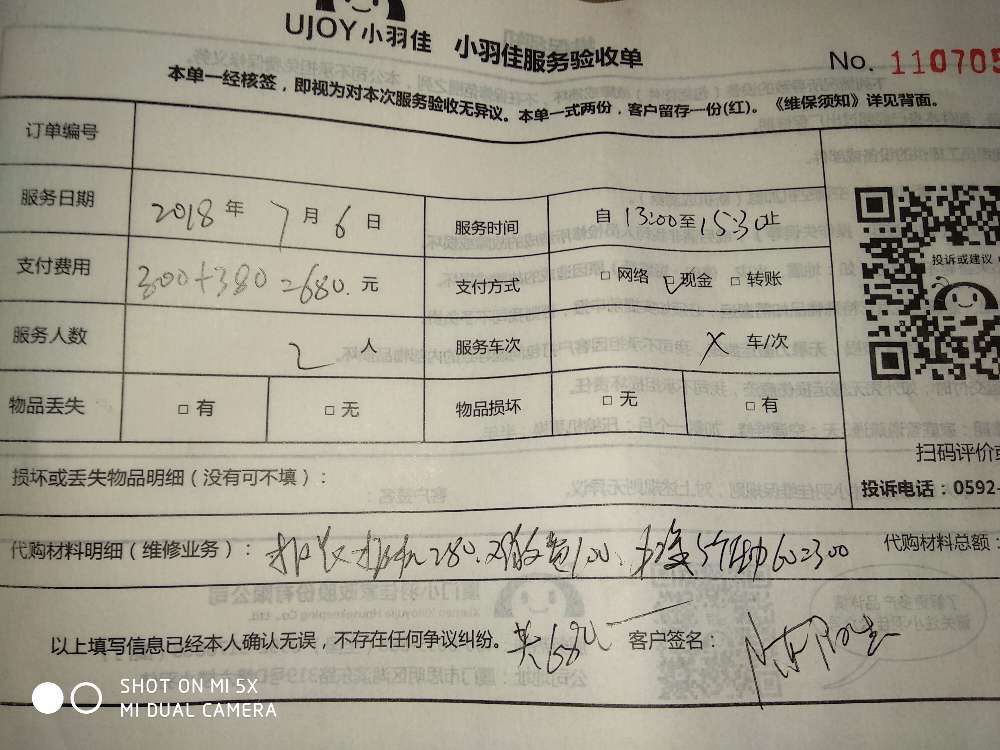 UJOY小羽佳 小羽佳服务验收单
No. 110705
本单一经核签，即视为对本次服务验收无异议。本单一式两份，客户留存一份(红)。《维保须知》详见背面。
订单编号
服务日期 2018 年 7 月 6 日 服务时间 自 13:00 至 15:30 止
支付费用 300+380=680. 元 支付方式 □ 网络 ✓现金 □ 转账
投诉或建议
服务人数 2 人 服务车次 X 车/次
物品丢失 □ 有 □ 无 物品损坏 □ 无 □ 有
扫码评价或
损坏或丢失物品明细（没有可不填）：
投诉电话：0592-
代购材料明细（维修业务）： 280 100 300 代购材料总额：
以上填写信息已经本人确认无误，不存在任何争议纠纷。共680 客户签名：
SHOT ON MI 5X
MI DUAL CAMERA